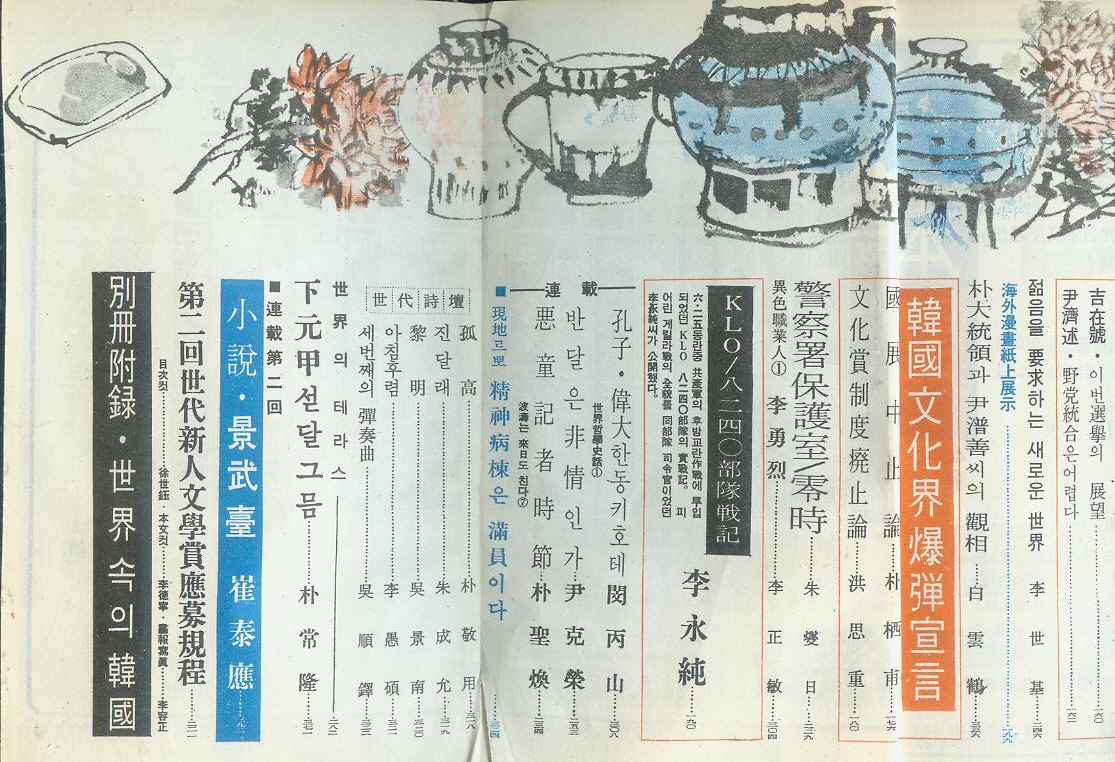 吉在號・이번選擧의 展望……一六〇
尹濟述・野党統合은어렵다……一六二
젊음을 要求하는 새로운 世界 李世基……二四六
海外漫畫紙上展示
朴大統領과 尹潽善씨의 觀相……白雲鶴
韓國文化界爆弾宣言
國展中止論……朴栖甫
文化賞制度廃止論……洪思重……一八〇
警察署保護室/零時……朱燮日
異色職業人① 李勇烈……李正敏……三〇四
KLO/八二四〇部隊戦記
李永純……一九〇
六・二五동란중 共產軍의 후방교란作戰에 투입
되었던 KLO 八二四〇部隊의 實戰記。 피
어린 게릴라戰의 全貌를 同部隊 司令官이었던
李永純씨가 公開했다。
連載
孔子・偉大한동키호테 閔丙山……三〇八
世界哲學史話①
반달은非情인가……尹克榮
悪童記者時節……朴聖煥
波濤는 來日도 친다⑦
■現地르뽀 精神病棟은 滿員이다
世代詩壇
孤高……朴敬用
진달래……朱成允
黎明……吳景南
아침후렴……李愚碩
세번째의 彈奏曲……吳順鐸
世界의 테라스
下元甲섣달그믐……朴常隆
■連載第二回
小說・景武臺 崔泰應
第二回世代新人文學賞應募規程
目次컷……徐世鈺・本文컷……李德寧・畵報寫眞……李容正
別冊附録・世界속의韓國